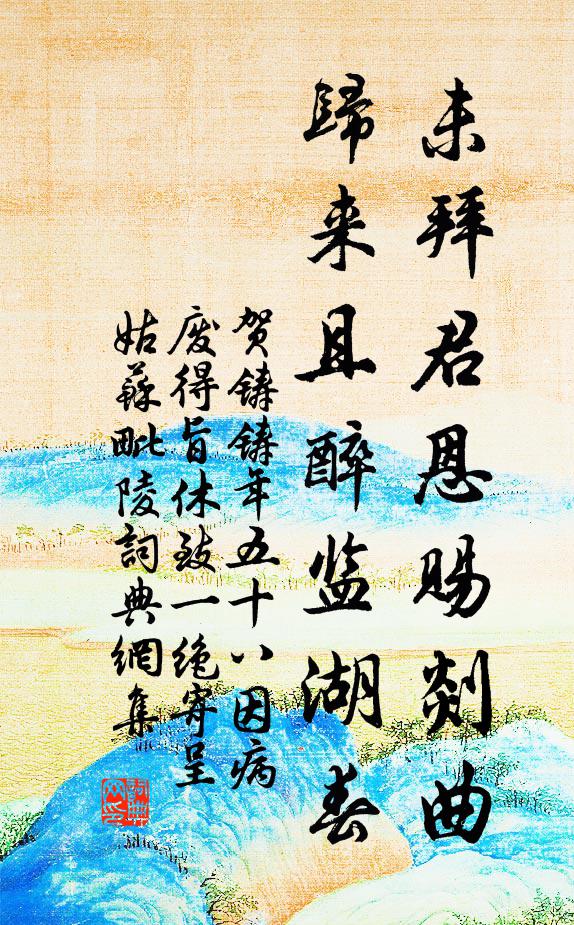 未拜君恩賜剡曲
歸来且醉监湖春
贺鑄鑄年五十八因病
废得旨休致一绝寄呈
姑蘇毗陵詞典網集